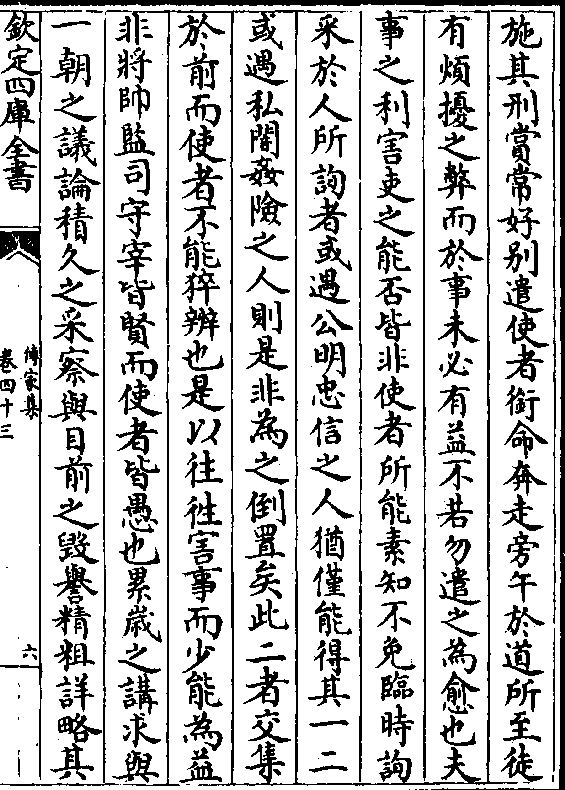 施其刑賞常好別遣使者銜命奔走旁午於道所至徒
有煩擾之弊而於事未必有益不若勿遣之為愈也夫
事之利害吏之能否皆非使者所能素知不免臨時詢
采於人所詢者或遇公明忠信之人猶僅能得其一二
或遇私闇姦險之人則是非為之倒置矣此二者交集
於前而使者不能猝辨也是以往往害事而少能為益
非將帥監司守宰皆賢而使者皆愚也累歲之講求與
一朝之議論積久之采察與目前之毀譽精粗詳略其
欽定四庫全書
傳家集
卷四十三
六